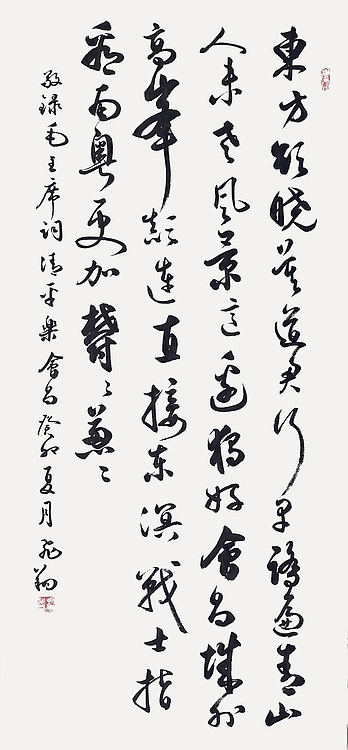 東方欲曉莫道君行早踏遍青山
人未老風景這邊獨好會昌城外
高峯顛連直接东溟戰士指
看南粵更加鬱〻葱〻
敬録毛主席词清平樂會昌癸卯夏月飛翔